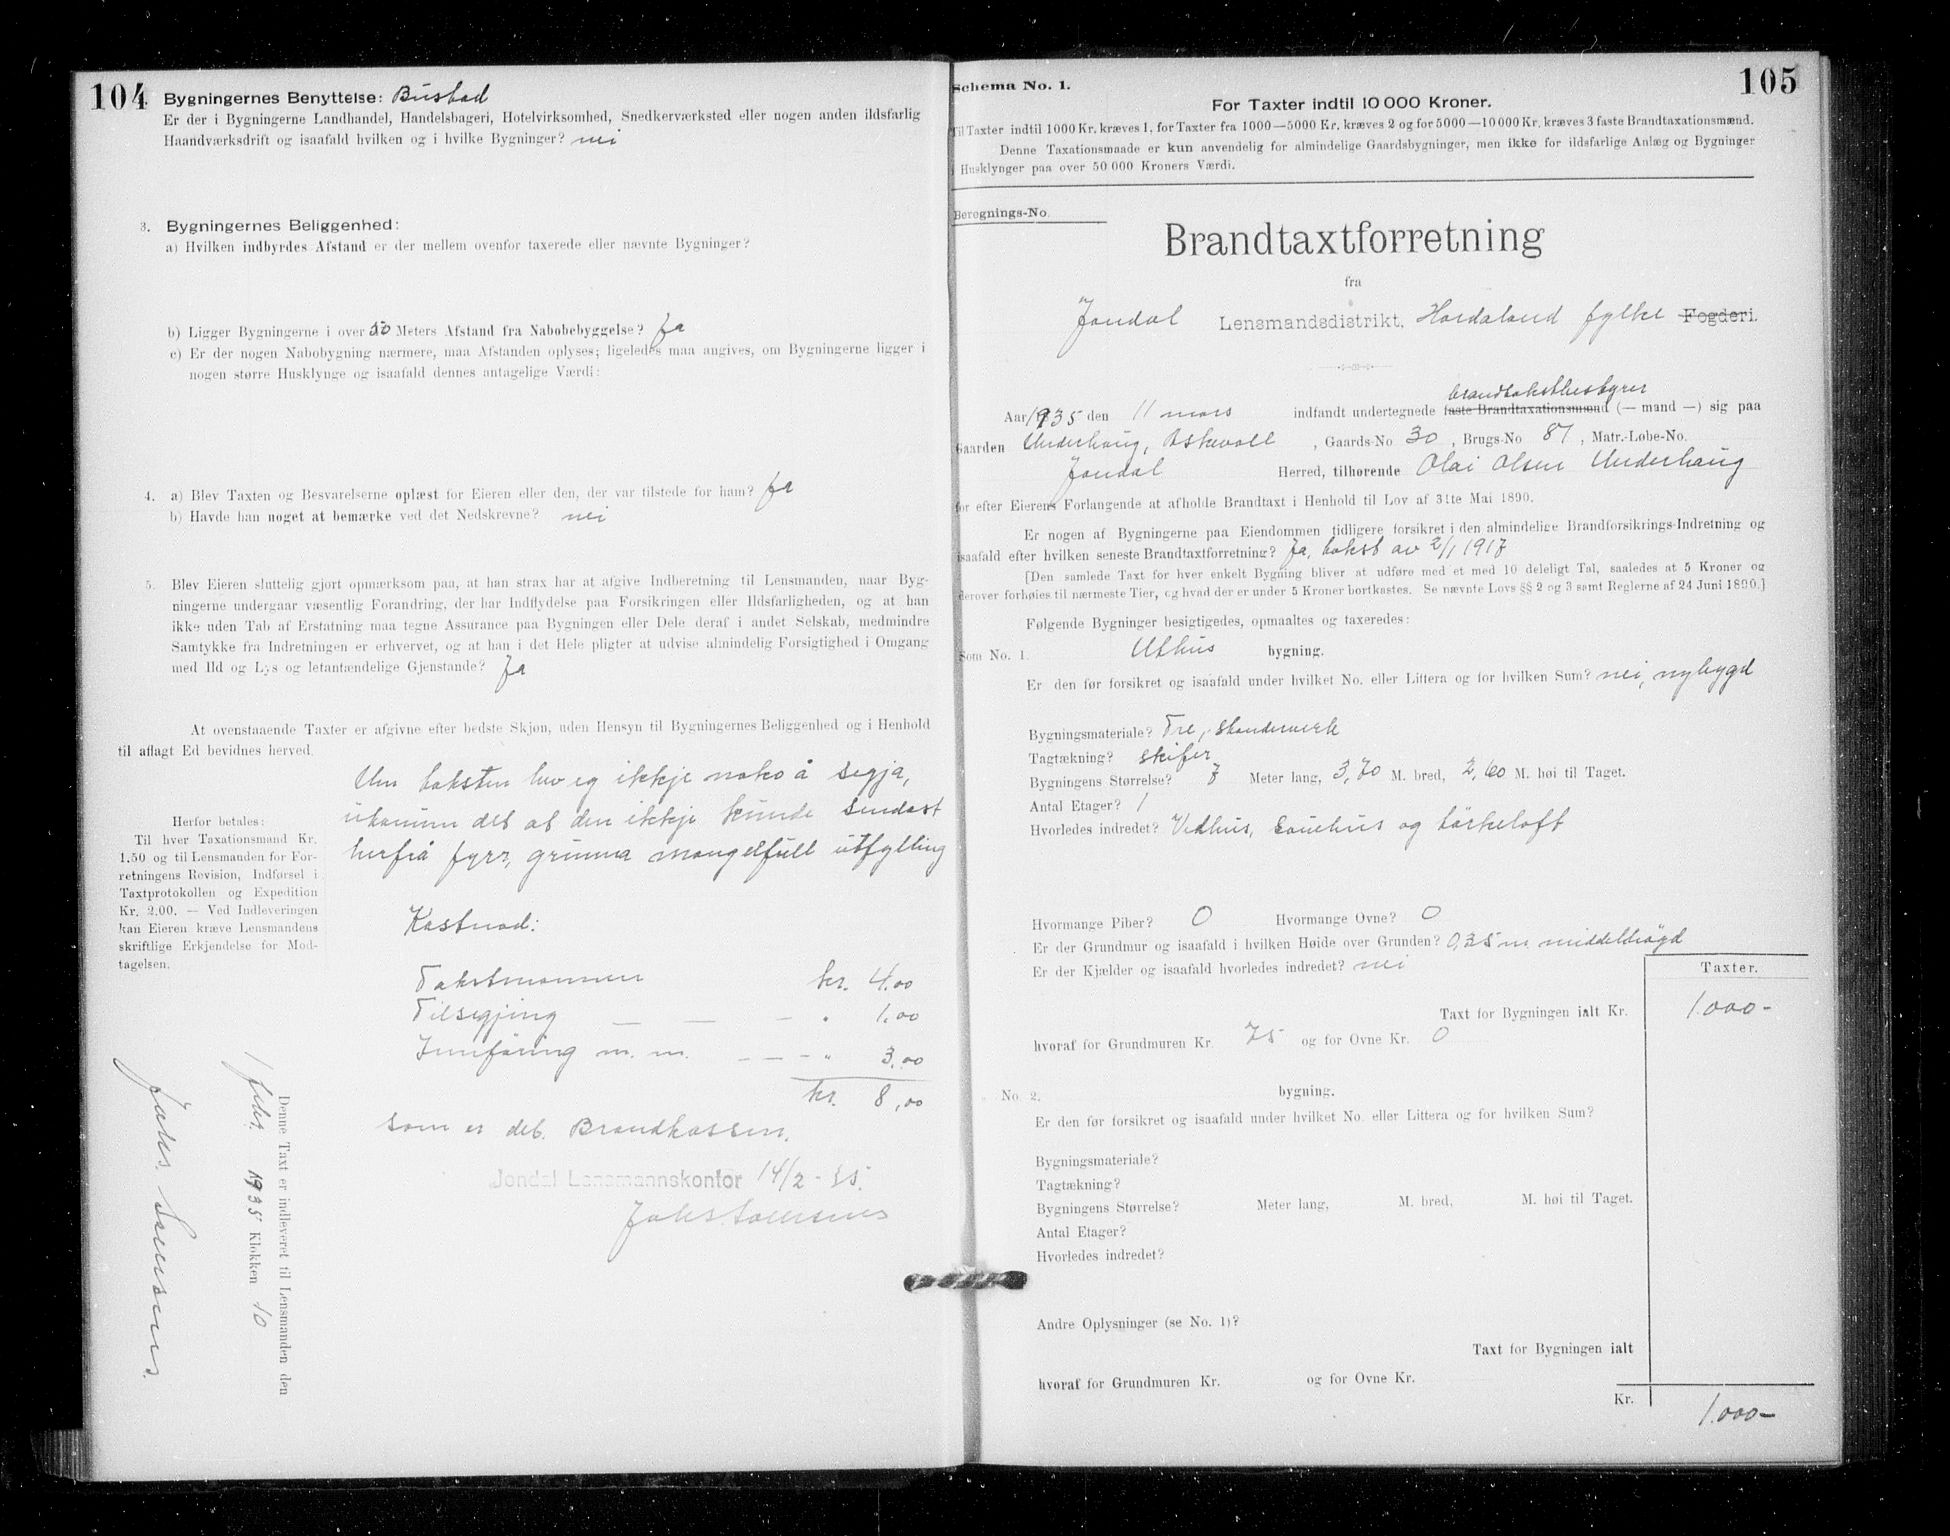 104
Bygningernes Benyttelse: Bustad
Er der i Bygningerne Landhandel, Handelsbageri, Hotelvirksomhed, Snedkerværksted eller nogen anden ildsfarlig
Haandværksdrift og isaafald hvilken og i hvilke Bygninger? nei
3. Bygningernes Beliggenhed:
a) Hvilken indbyrdes Afstand er der mellem ovenfor taxerede eller nævnte Bygninger?
b) Ligger Bygningerne i over 50 Meters Afstand fra Nabobebyggelse? Ja
c) Er der nogen Nabobygning nærmere, maa Afstanden oplyses; ligeledes maa angives, om Bygningerne ligger i
nogen større Husklynge og isaafald dennes antagelige Værdi:
4. a) Blev Taxten og Besvarelserne oplæst for Eieren eller den, der var tilstede for ham? Ja
b) Havde han noget at bemærke ved det Nedskrevne? nei
5. Blev Eieren sluttelig gjort opmærksom paa, at han strax har at afgive Indberetning til Lensmanden, naar Byg-
ningerne undergaar væsentlig Forandring, der har Indflydelse paa Forsikringen eller Ildsfarligheden, og at han
ikke uden Tab af Erstatning maa tegne Assurance paa Bygningen eller Dele deraf i andet Selskab, medmindre
Samtykke fra Indretningen er erhvervet, og at han i det Hele pligter at udvise almindelig Forsigtighed i Omgang
med Ild og Lys og letantændelige Gjenstande? Ja
At ovenstaaende Taxter er afgivne efter bedste Skjøn, uden Hensyn til Bygningernes Beliggenhed og i Henhold
til aflagt Ed bevidnes herved.
Um taksten hev eg ikkje noko å segja,
utanum det at den ikkje kunde sendast
herfrå fyrr, grunna mangelfull utfylling
Herfor betales:
Til hver Taxationsmand Kr.
1.50 og til Lensmanden for For-
retningens Revision, Indførsel i
Taxtprotokollen og Expedition
Kr. 2.00. — Ved Indleveringen
kan Eieren kræve Lensmandens
skriftlige Erkjendelse for Mod-
tagelsen.
Kostnad:
Takstmannen kr. 4,00
Tilsegjing — — — " 1,00
Innføring m. m. - - - " 3,00
kr. 8,00
som er deb. Brandkassen.
Jondal Lensmannskontor 14/2-35.
Denne Taxt er indleveret til Lensmanden den
1935 Klokken 10
105
Schema No. 1.
For Taxter indtil 10 000 Kroner.
Til Taxter indtil 1000 Kr. kræves 1, for Taxter fra 1000—5000 Kr. kræves 2 og for 5000—10000 Kr. kræves 3 faste Brandtaxationsmænd.
Denne Taxationsmaade er kun anvendelig for almindelige Gaardsbygninger, men ikke for ildsfarlige Anlæg og Bygninger
i Husklynger paa over 50 000 Kroners Værdi.
Beregnings-No.
Brandtaxtforretning
fra
Jondal Lensmandsdistrikt, Hordaland fylke Fogderi.
brandtakstbestyrer
Aar 1935 den 11 mars indfandt undertegnede faste Brandtaxationsmænd (— mand —) sig paa
Gaarden Underhaug, Oskevoll, Gaards-No 30, Brugs-No 87, Matr.-Løbe-No.
Jondal Herred, tilhørende Olai Olsen Underhaug
for efter Eierens Forlangende at afholde Brandtaxt i Henhold til Lov af 31te Mai 1890.
Er nogen af Bygningerne paa Eiendommen tidligere forsikret i den almindelige Brandforsikrings-Indretning og
isaafald efter hvilken seneste Brandtaxtforretning? Ja, takst av 2/1 1917
[Den samlede Taxt for hver enkelt Bygning bliver at udføre med et med 10 deleligt Tal, saaledes at 5 Kroner og
derover forhøies til nærmeste Tier, og hvad der er under 5 Kroner bortkastes. Se nævnte Lovs §§ 2 og 3 samt Reglerne af 24 Juni 1890.]
Følgende Bygninger besigtigedes, opmaaltes og taxeredes:
Som No. 1. Uthus bygning.
Er den før forsikret og isaafald under hvilket No. eller Littera og for hvilken Sum? nei, nybygd
Bygningsmateriale? Tre, standerverk
Tagtækning? skifer
Bygningens Størrelse? 7 Meter lang, 3,70 M. bred, 2,60 M. høi til Taget.
Antal Etager? 1
Hvorledes indredet? Vedhus, sauehus og tørkeloft
Hvormange Piber? 0 Hvormange Ovne? 0
Er der Grundmur og isaafald i hvilken Høide over Grunden? 0,35 m, middelhøgd
Er der Kjælder og isaafald hvorledes indredet? nei
Taxter.
Taxt for Bygningen ialt Kr. 1.000-
hvoraf for Grundmuren Kr. 75 og for Ovne Kr. 0
No. 2. bygning.
Er den før forsikret og isaafald under hvilket No. eller Littera og for hvilken Sum?
Bygningsmateriale?
Tagtækning?
Bygningens Størrelse? Meter lang, M. bred, M. høi til Taget.
Antal Etager?
Hvorledes indredet?
Andre Oplysninger (se No. 1)?
Taxt for Bygningen ialt
hvoraf for Grundmuren Kr. og for Ovne Kr.
Kr. 1.000-